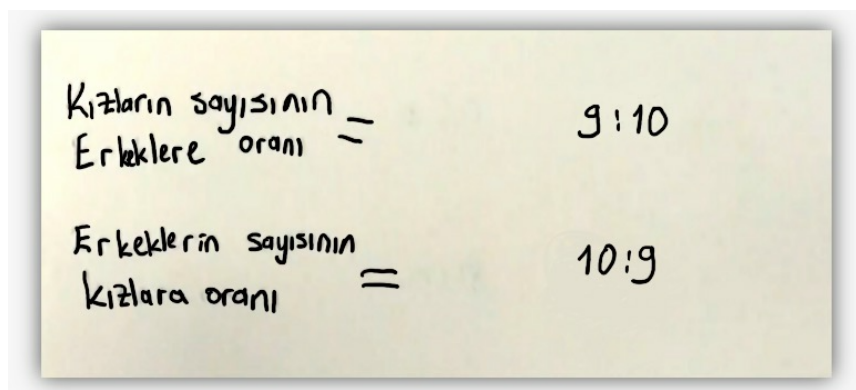 Kızların sayısının
Erkeklere oranı = 9:10
Erkeklerin sayısının
kızlara oranı = 10:9